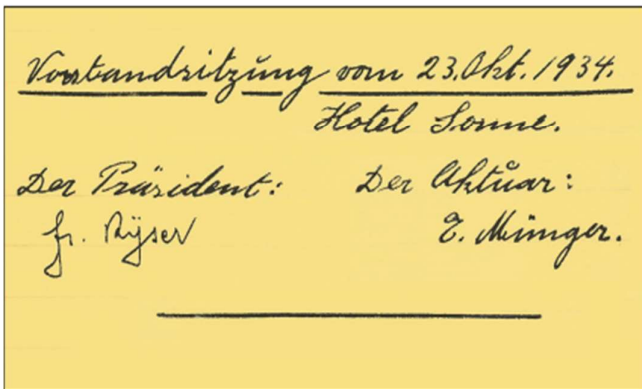 Vorstandsitzung vom 23. Okt. 1934.
Hotel Sonne.
Der Präsident: Der Aktuar:
fr. Ryser E. Münger.